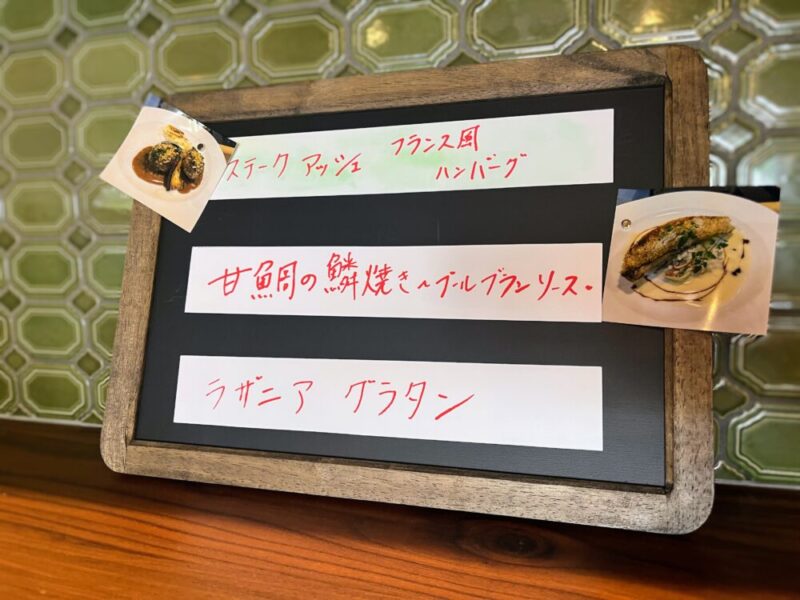 ステーク アッシェ フランス風
ハンバーグ
甘鯛の鱗焼き~ブールブランソース。
ラザニア グラタン